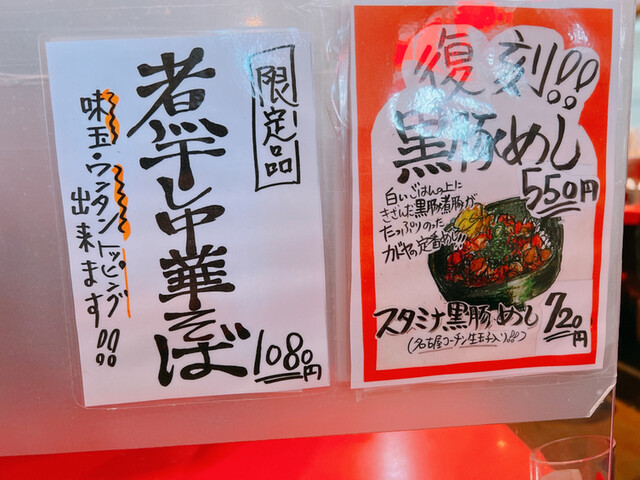 限定品
煮干し中華そば
1080円
味玉・ワンタントッピング
出来ます!!
復刻!!
黒豚めし
550円
白いごはんの上に
きざんだ黒豚煮豚が
たっぷりのった
カドヤの定番めし!!
スタミナ黒豚めし 720円
(名古屋コーチン生玉子入り)